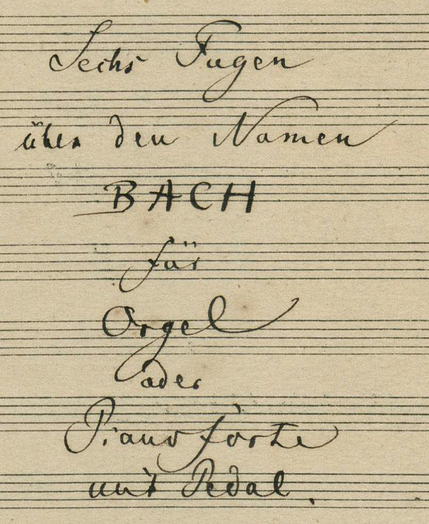 Sechs Fugen
über den Namen
BACH
für
Orgel
oder
Pianoforte
mit Pedal.